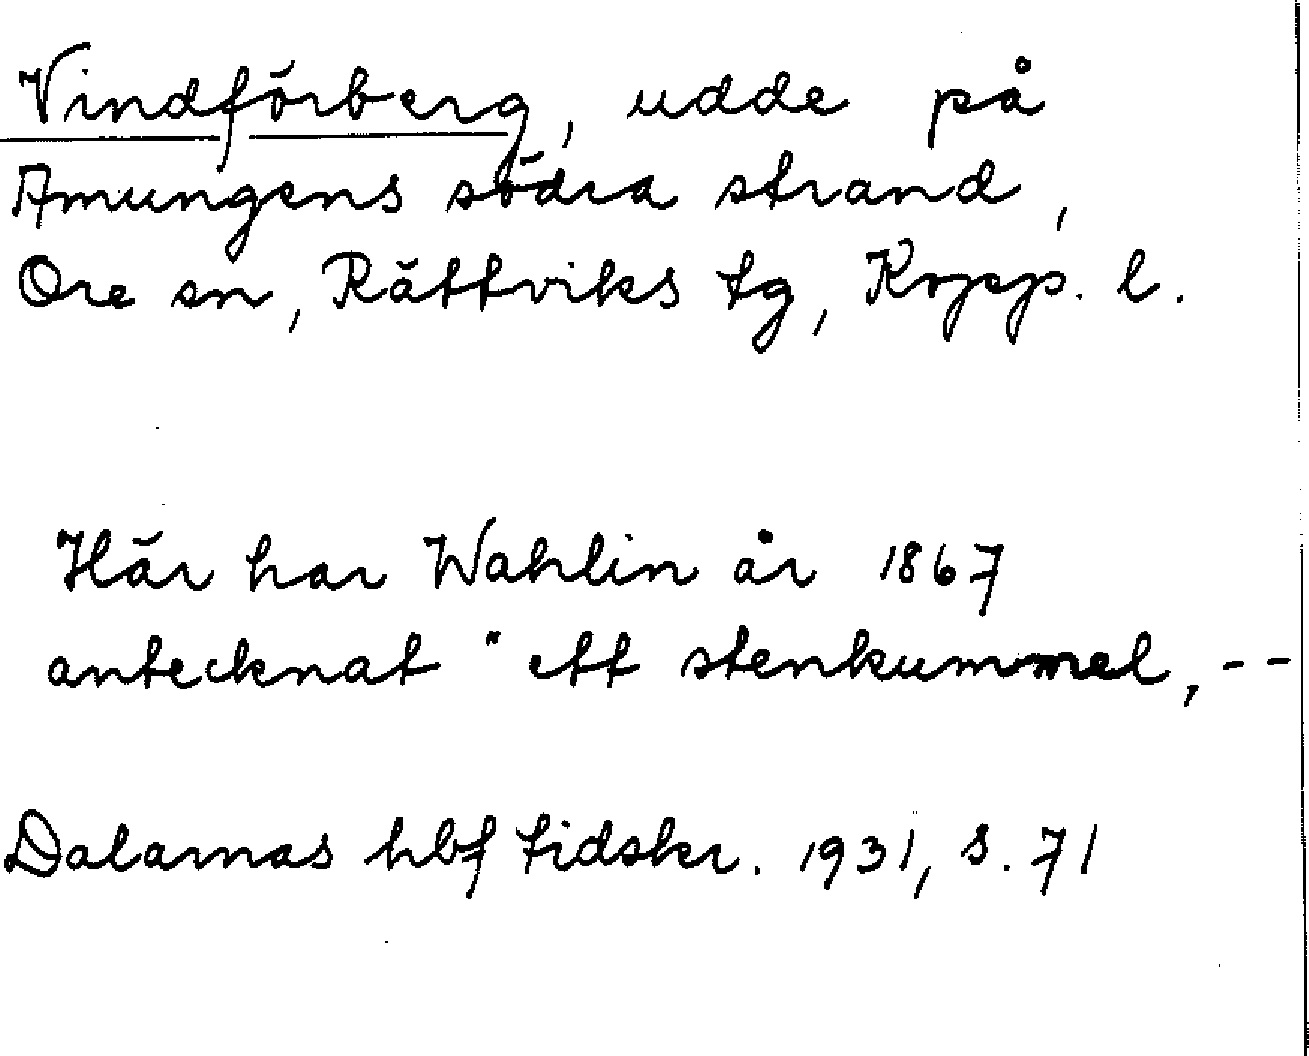 Vindförberg, udde på
Amungens södra strand,
Ore sn, Rättviks tg, Kopp. l.
Här har Wahlin år 1867
antecknat "ett stenkummel, --
Dalarnas hbf tidskr. 1931, s. 71